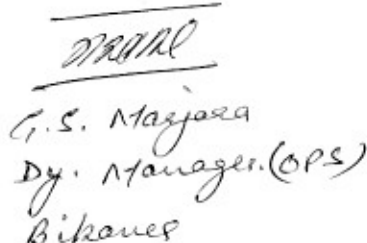 G.S. Marjara
Dy. Manager.(OPS)
Bikaner